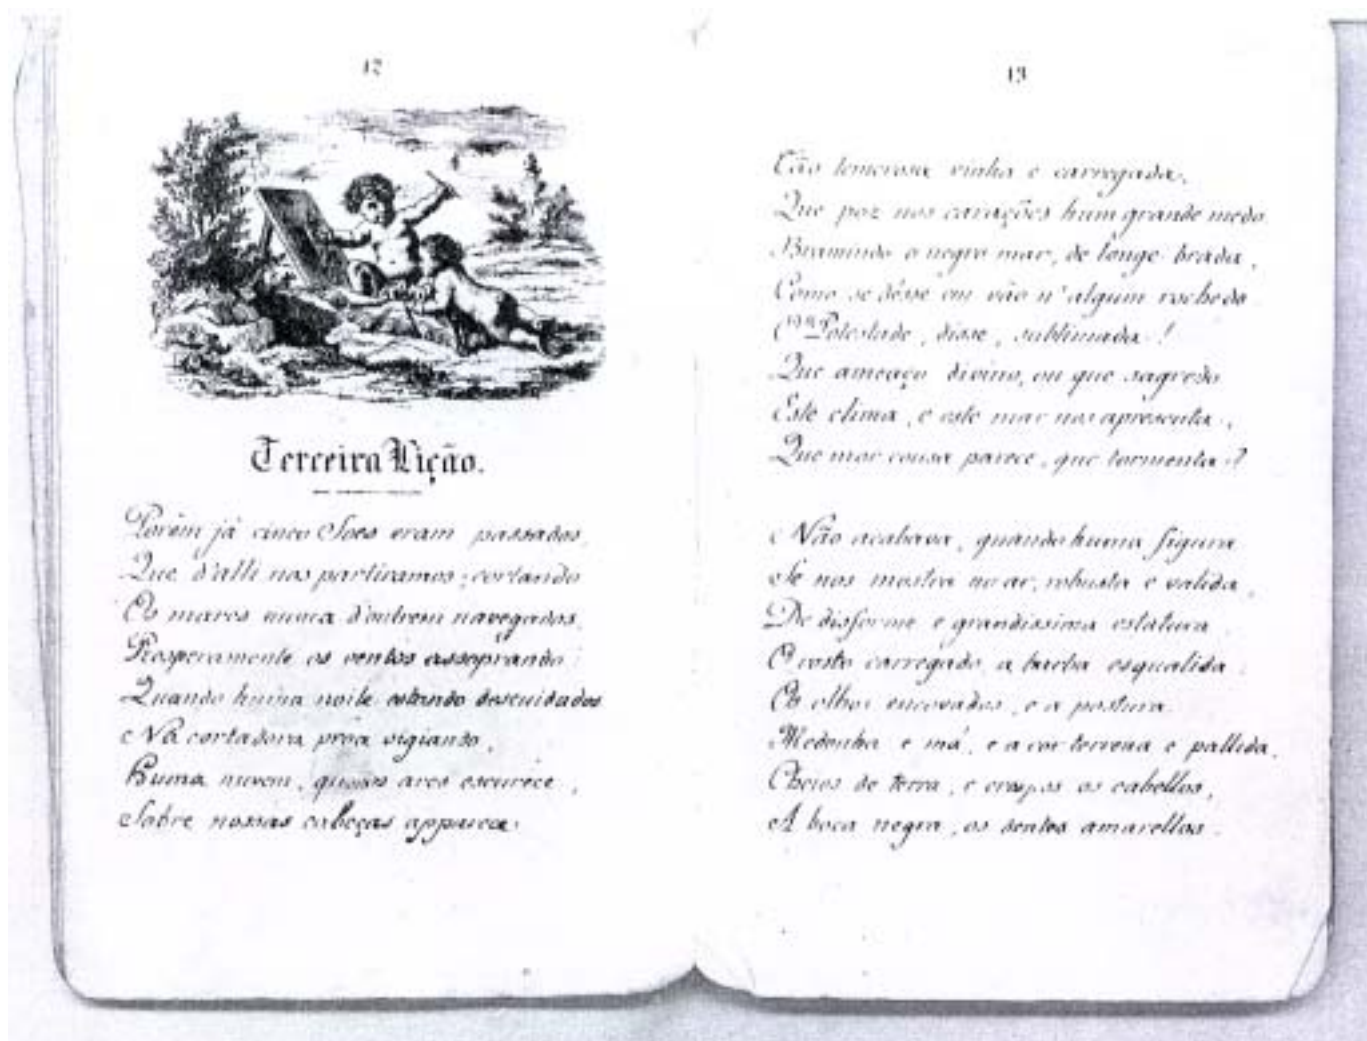 12
Terceira Lição.
Porêm já cinco Soes eram passados,
Que d'alli nos partiramos, cortando
Os mares nunca d'outrem navegados,
Prosperamente os ventos assoprando:
Quando huma noite estando descuidados
Na cortadora prôa vigiando,
Huma nuvem, que os ares escurece,
Sobre nossas cabeças apparece.
13
Tão temerosa vinha e carregada,
Que poz nos corações hum grande medo
Bramindo o negro mar, de longe brada,
Como se désse em vão n'algum rochedo
Potestade, disse, sublimada!
Que ameaço divino, ou que sagredo
Este clima, e este mar nos apresenta,
Que mor cousa parece, que tormenta?
Não acabava, quando huma figura
Se nos mostra no ar, robusta e valida,
De disforme e grandissima estatura
O rosto carregado, a barba esqualida:
Os olhos encovados, e a postura
Medonha e má, e a cor terrena e pallida,
Cheios de terra, e crespos os cabellos,
A boca negra, os dentes amarellos.